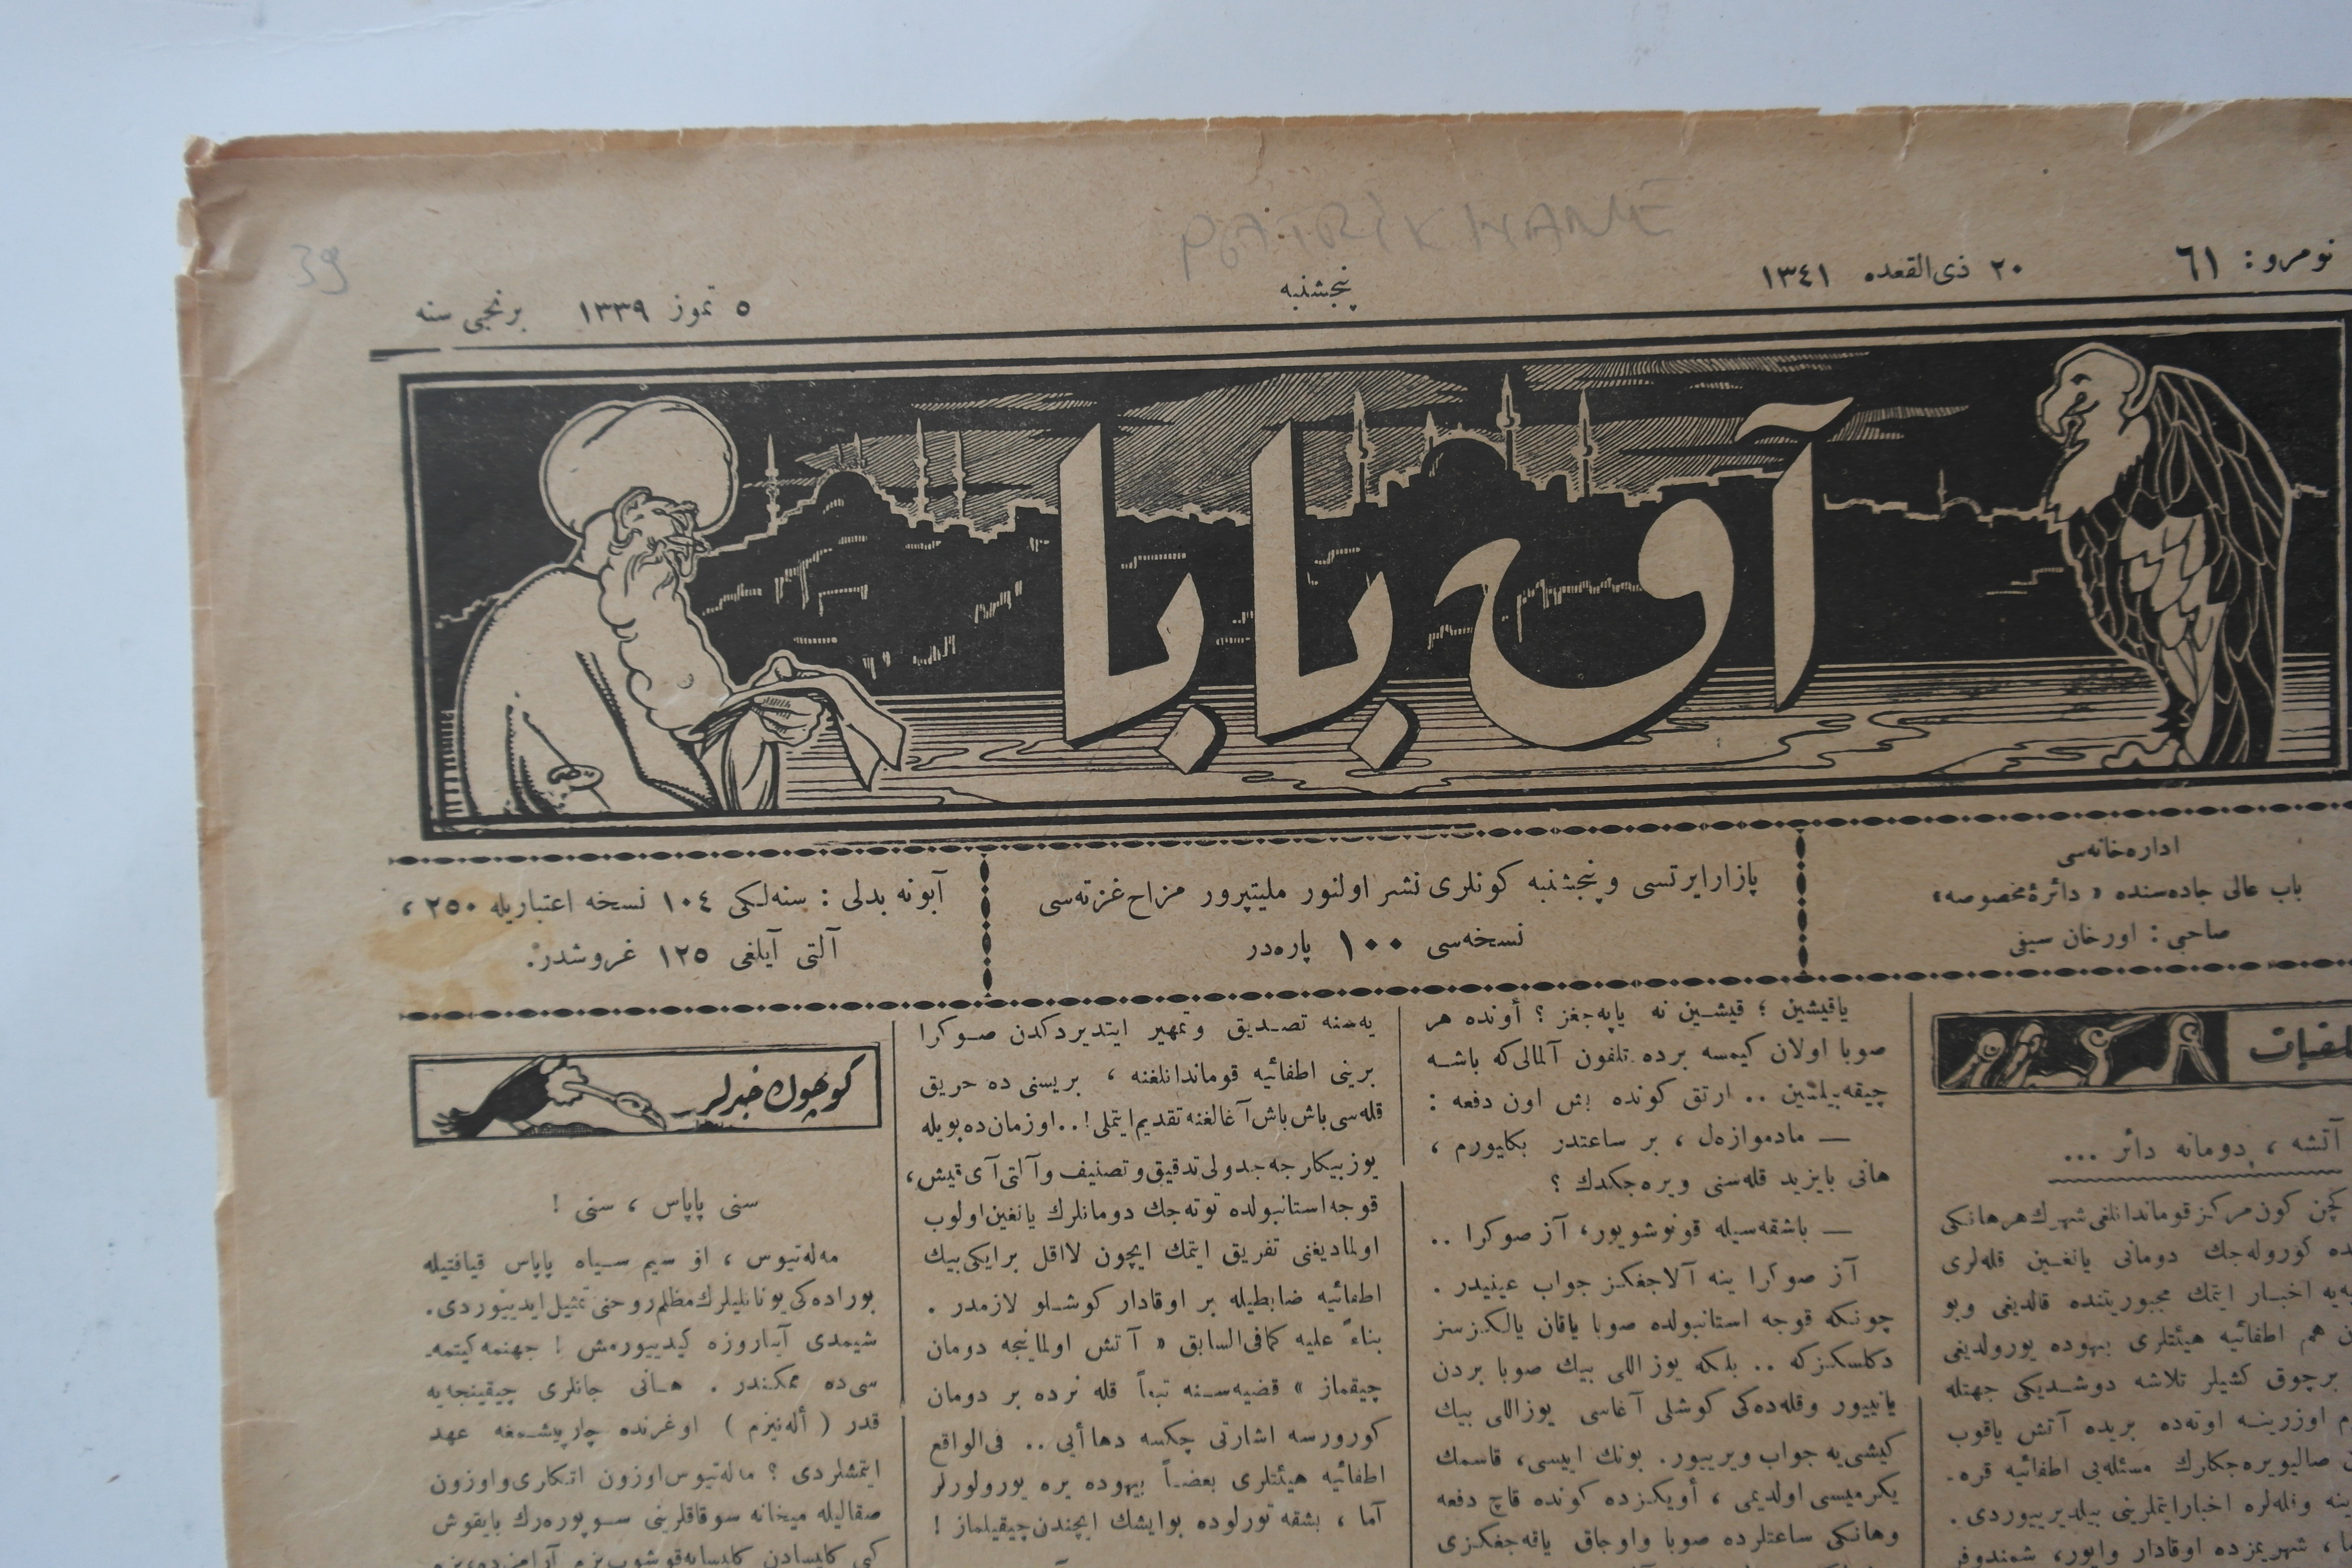 39
PATRİKHANE
نومرو : ٦١
٢٠ ذی‌القعده ١٣٤١
پنجشنبه
٥ تموز ١٣٣٩
برنجی سنه
آق بابا
اداره‌خانه‌سی
باب عالی جاده‌سنده « دائرۀ مخصوصه »
صاحبی : اورخان سیفی
پازار ایرتسی و پنجشنبه کونلری نشر اولنور ملیتپرور مزاح غزته‌سی
نسخه‌سی ١٠٠ پاره‌در
آبونه بدلی : سنه‌لکی ١٠٤ نسخه اعتباریله ٢٥٠ ،
آلتی آیلغی ١٢٥ غروشدر.
آتشه ، دومانه دائر ...
کچن کون مرکز قوماندانلغی شهرك هر هانکی
ده کوروله‌جك دومانی یانغین قله‌لری
یه اخبار ایتمك مجبوریتنده قالدیغی وبو
هم اطفائیه هیئتلری بیهوده یورولدیغی
برچوق کشیلر تلاشه دوشدیکی جهتله
اوزرینه اوته‌ده بریده آتش یاقوب
صالیویره‌جکلرك مسئله‌یی اطفائیه قره‌ـ
ینه وقله‌لره اخبار ایتملرینی بیلدیرییوردی .
، شهریمزده اوقادار واپور، شمندوفر
یاقیشین ؛ قیشین نه یاپه‌جغز ؟ أونده هر
صوبا اولان کیمسه برده تلفون آلمالی‌که باشه
چیقه‌بیلسین .. ارتق کونده بش اون دفعه :
— مادموازه‌ل ، بر ساعتدر بکلیورم ،
هانی بایزید قله‌سنی ویره‌جکدك ؟
— باشقه‌سیله قونوشویور، آز صوکرا ..
آز صوکرا ینه آلاجغکز جواب عینیدر .
چونکه قوجه استانبولده صوبا یاقان یالکز سز
دکلسکزکه .. بلکه یوز اللی بیك صوبا بردن
یانییور وقله‌ده‌کی کوشلی آغاسی یوز اللی بیك
کیشی‌یه جواب ویرییور. بونك اییسی، قاسمك
یکرمیسی اولدیمی ، أویکزده کونده قاچ دفعه
وهانکی ساعتلرده صوبا واوجاق یاقه‌جغکزی
یه‌سنه تصدیق وتمهیر ایتدیردکدن صوکرا
برینی اطفائیه قوماندانلغنه ، بریسنی ده حریق
قله‌سی باش باش آغالغنه تقدیم ایتملی!.. اوزمان ده بویله
یوز بیکلرجه جدولی تدقیق و تصنیف و آلتی آی قیش،
قوجه استانبولده توته‌جك دومانلرك یانغین اولوب
اولمادیغنی تفریق ایتمك ایچون لااقل بر ایکی بیك
اطفائیه ضابطیله بر اوقادار کوشلو لازمدر .
بناءً علیه کمافی‌السابق « آتش اولماینجه دومان
چیقماز » قضیه‌سنه تبعاً قله نرده بر دومان
کورورسه اشارتی چکسه دها أیی .. فی‌الواقع
اطفائیه هیئتلری بعضاً بیهوده یره یورولورلر
آما ، بشقه تورلوده بوایشك ایچندن چیقیلماز !
کوچوك خبرلر
سنی پاپاس ، سنی !
مه‌له‌تیوس ، او سیم سیاه پاپاس قیافتیله
بوراده‌کی یونانلیلرك مظلم روحنی تمثیل ایدییوردی.
شیمدی آیناروزه کیدییورمش ! جهنمه کیتمه‌ـ
سی ده ممکندر . هانی جانلری چیقینجه‌یه
قدر ( أله‌نیزم ) اوغرنده چارپیشمغه عهد
ایتمشلردی ؟ مه‌له‌تیوس اوزون اتکلری و اوزون
صقالیله میخانه سوقاقلرینی سوپوره‌رك بایقوش